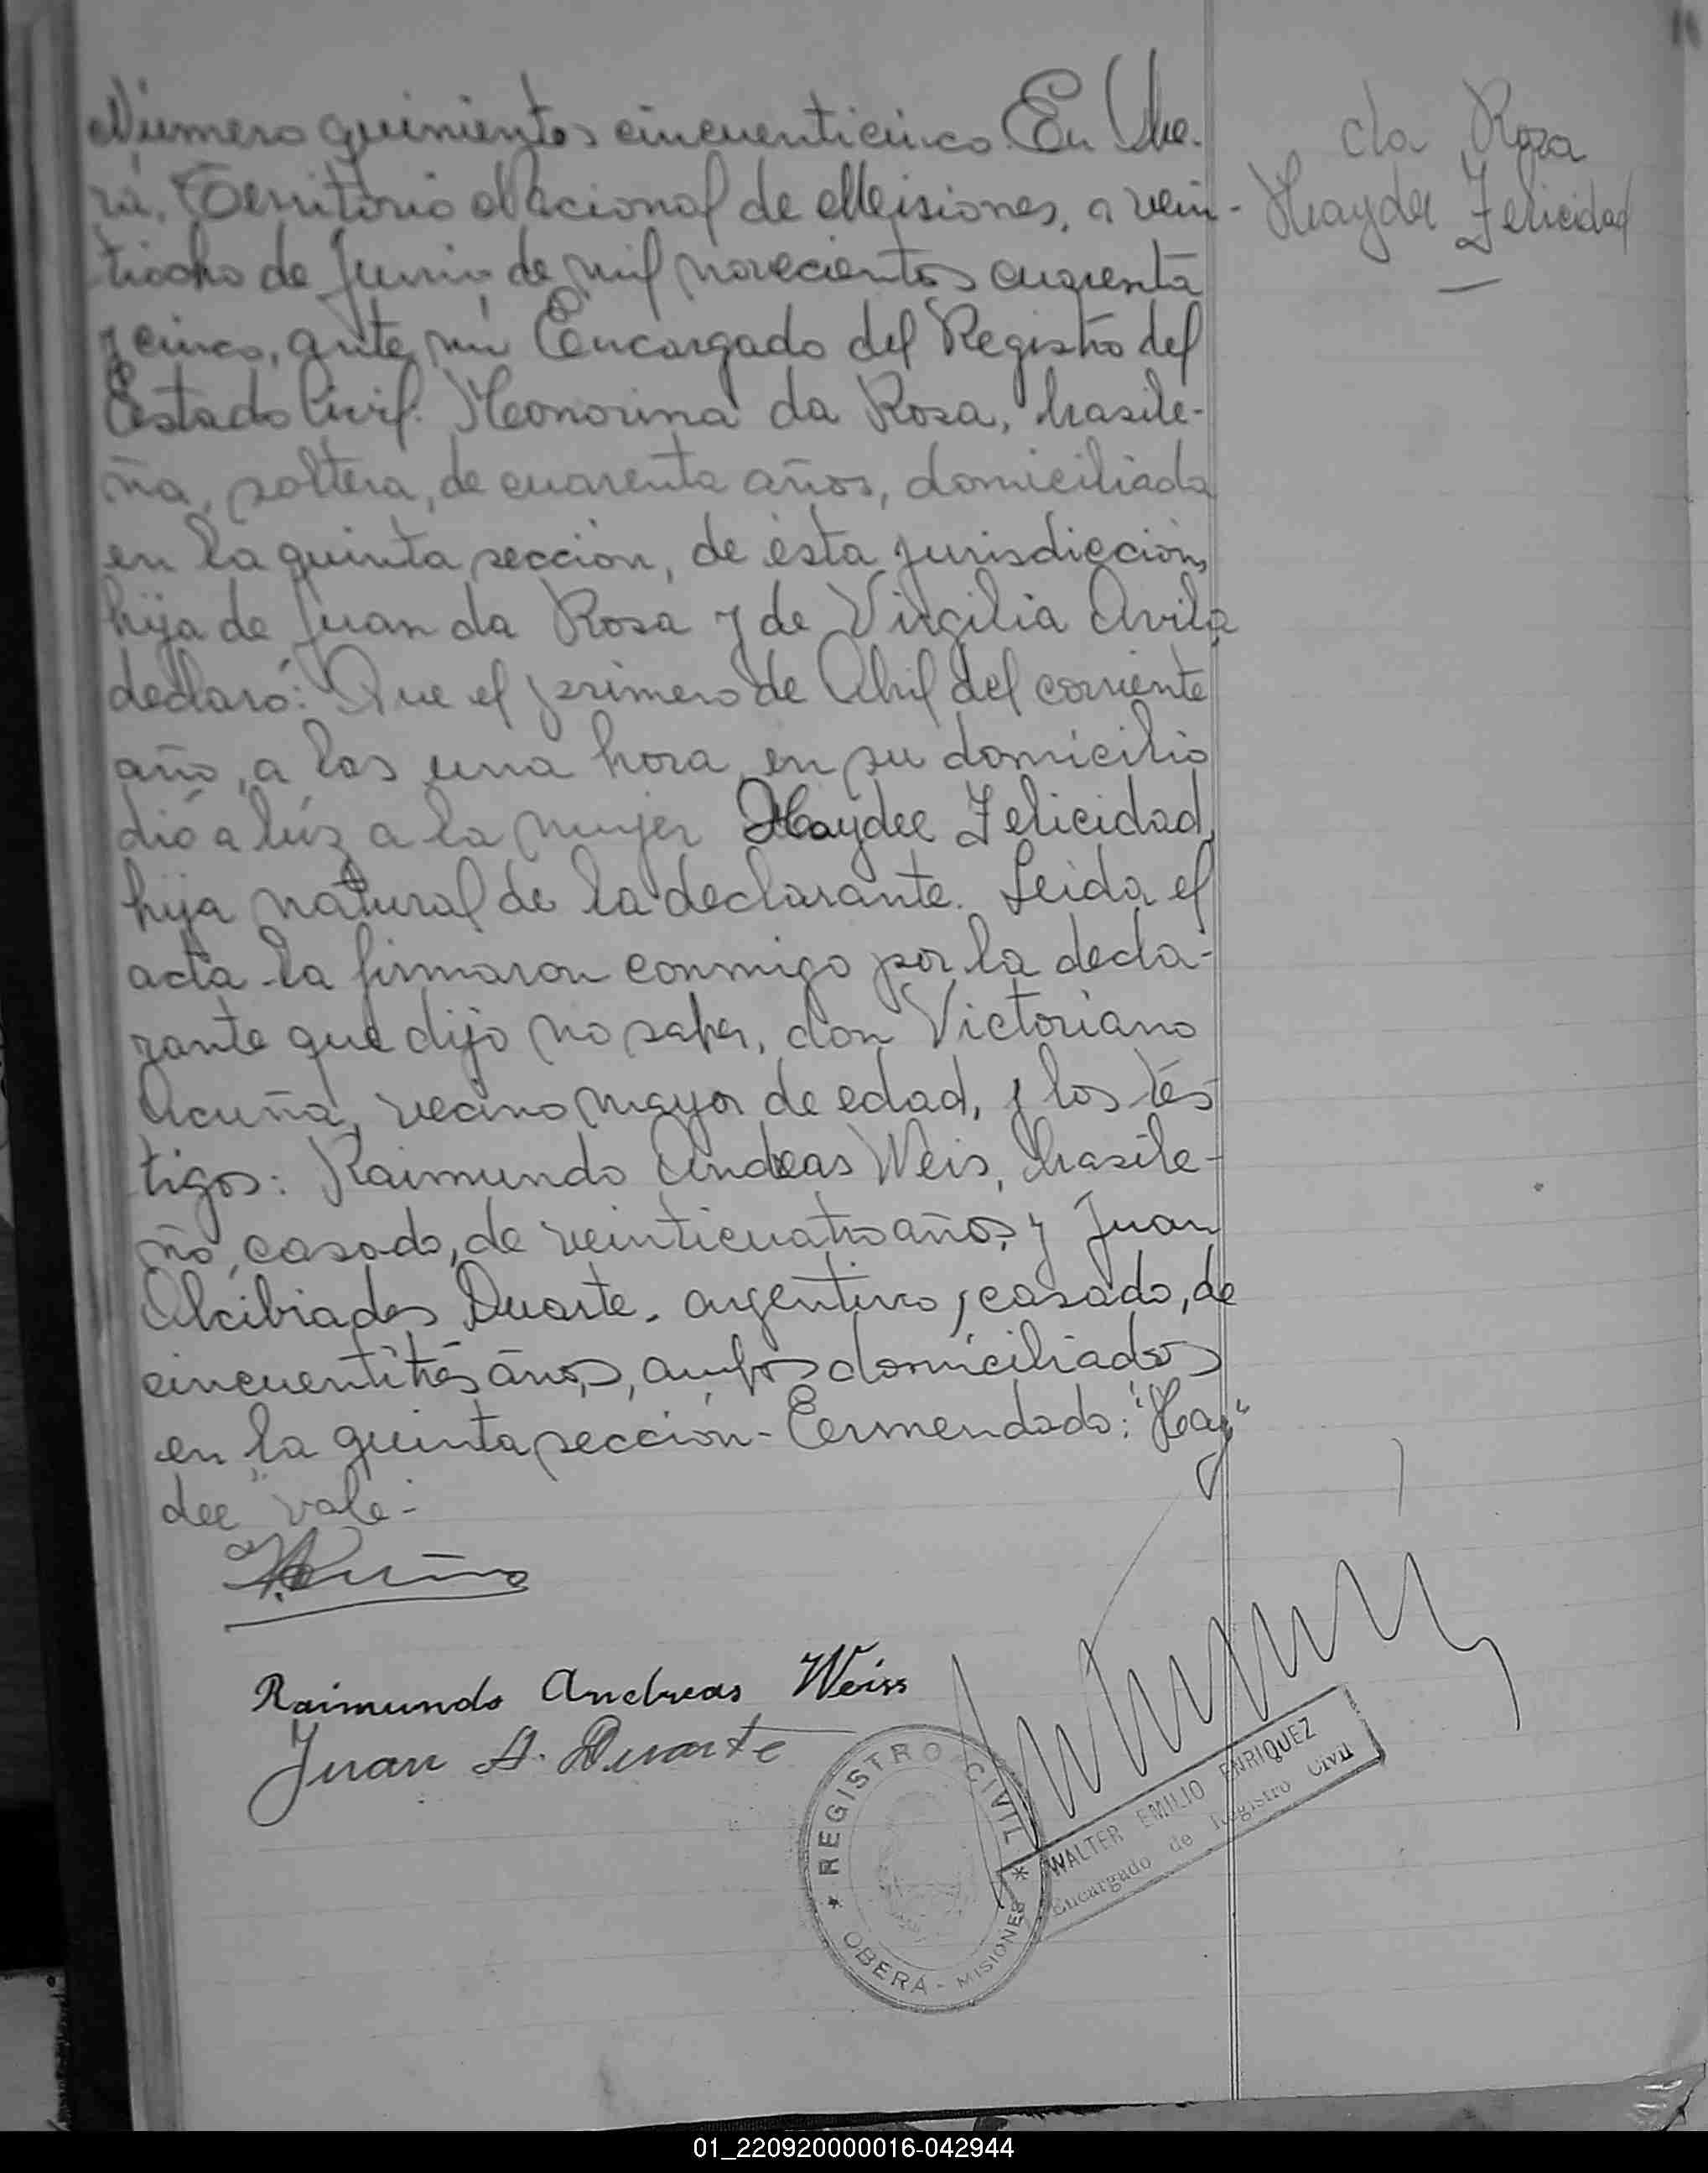 da Rosa
Haydee Felicidad
Número quinientos cincuenticinco. En Obe-
rá, Territorio Nacional de Misiones, a vein-
tiocho de Junio de mil novecientos cuarenta
y cinco, ante mi Encargado del Registro del
Estado Civil. Honorina da Rosa, brasile-
ña, soltera, de cuarenta años, domiciliada
en la quinta sección, de ésta jurisdicción,
hija de Juan da Rosa y de Virgilia Avila,
declaró: Que el primero de Abril del corriente
año, a las una hora, en su domicilio
dió a lúz a la mujer Haydee Felicidad,
hija natural de la declarante. Leida el
acta la firmaron conmigo por la decla-
rante que dijo no saber, don Victoriano
Acuña, vecino mayor de edad, y los tés
tigos: Raimundo Andreas Weis, brasile-
ño, casado, de veinticuatro años, y Juan
Alcibiades Duarte, argentino, casado, de
cincuentitrés años, ambos domiciliados
en la quinta sección - Enmendado: "Hay"
dee" vale -
V. Acuña
Raimundo Andreas Weiss
Juan A. Duarte
REGISTRO CIVIL
OBERÁ - MISIONES
WALTER EMILIO ENRIQUEZ
Encargado de Registro Civil
01_220920000016-042944